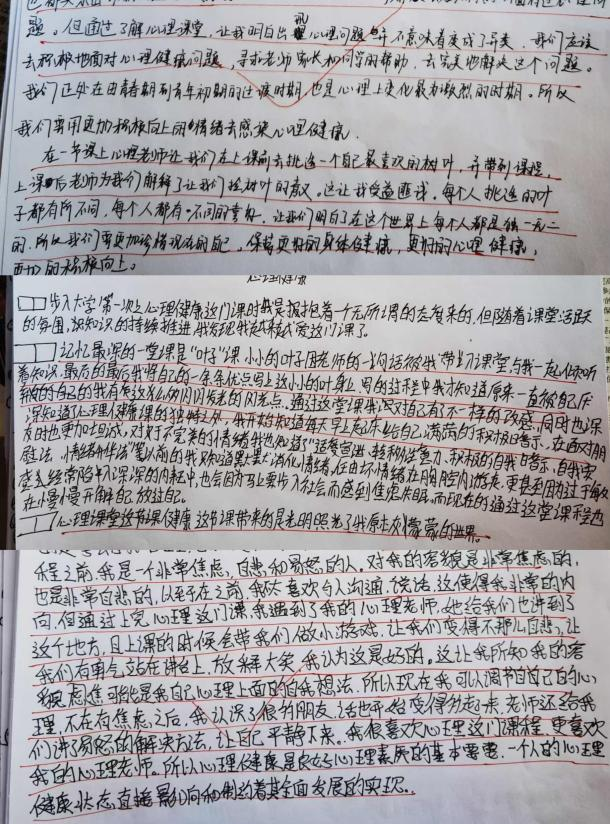 题。但通过了解心理课堂，让我明白出现心理问题并不意味着变成了异类，我们应该
去积极地面对心理健康问题，寻求老师家长和同学的帮助，去完美地解决这个问题。
我们正处在由青春期到青年初期的过渡时期，也是心理上变化最为激烈的时期。所以
我们需用更加积极向上的情绪去感染心理健康。
在一节课上心理老师让我们在上课前去挑选一个自己最喜欢的树叶，并带到课程，
上课后老师为我们解释了让我们捡树叶的意义。这让我受益匪浅，每个人挑选的叶
子都有所不同，每个人都有不同的喜好，让我们明白了在这个世界上每个人都是独一无二
的，所以我们需要更加珍惜现在的自己，保持更好的身体健康，更好的心理健康，
更加的积极向上。
心理健康
步入大学第一次上心理健康这门课时我是报抱着一个无所谓的态度来的，但随着课堂活跃
的氛围，识知识的持续推进，我发现我越来越爱这门课了。
记忆最深的一堂课是"叶子"课，小小的叶子因老师的一句话被我带到课堂与我一起
着知识，最后的最后我将自己的一条条优点写上这小小的叶身上，写的过程中我才知道原来一直被自己
的自己的我有着这么的闪闪发光的闪光点。通过这堂课我对自己有了不一样的改感，同时也深
深知道了心理健康课的独特之处，我开始知道每天早上起床给自己满满的积极暗示，在面对朋
友时也更加坦诚，对于不完美的小情绪我也知道了"适度宣泄，转移注意力、积极的自我暗示、自我安
慰法、情绪升华法"等以前的我只知道默默消化情绪，任由坏情绪在胸腔内游走，更甚至因为过于敏
感会经常陷入深深的内耗中，也会因为马上要步入社会而感到焦虑失眠，而现在的通过这堂课
在慢慢开解自己，放过自己。
心理课堂这节课健康这节课带来的是光明照亮了我原本灰蒙蒙的世界。
程之前，我是一个非常焦虑，自悲和易怒的人。对我的容貌是非常焦虑的，
也是非常自悲的，以至于在之前，我不太喜欢与人沟通，说话，这使得我非常的内
向，但通过上完心理这门课，我遇到了我的心理老师，她给我们也讲到了
这个地方，且上课的时候会带我们做小游戏，让我们变得不那么自悲，让
我们有勇气站在讲台上，放肆大笑，我认为这是好的。这让我所知我的容
貌焦虑可能是我自己心理上面的自我想法，所以现在我可以调节的自己的心
理，不在有焦虑，之后，我认识了很多朋友，话也开始变得多起来，老师还给我
们讲了易怒的解决方法，让自己平静下来。我很喜欢心理这门课程，更喜欢
我的心理老师。所以心理健康是良好心理素质的基本要需，一个人的心理
健康状态，直接影响和制约着其全面发展的实现。